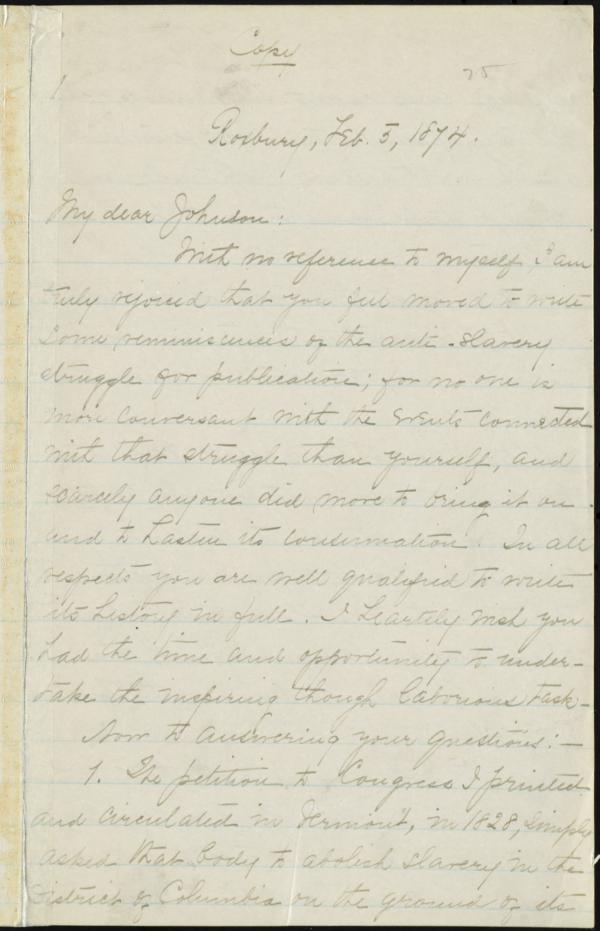 Copy
75
1
Roxbury, Feb. 5, 1874.
My dear Johnson:
With no reference to myself, I am
truly rejoiced that you feel moved to write
some reminiscences of the anti-slavery
struggle for publication; for no one is
more conversant with the events connected
with that struggle than yourself, and
scarcely anyone did more to bring it on
and to hasten its consummation. In all
respects you are well qualified to write
its history in full. I heartily wish you
had the time and opportunity to under-
take the inspiring though laborious task.
Now to answering your questions:—
1. The petition to Congress I printed
and circulated in Vermont, in 1828, simply
asked that body to abolish slavery in the
District of Columbia on the ground of its